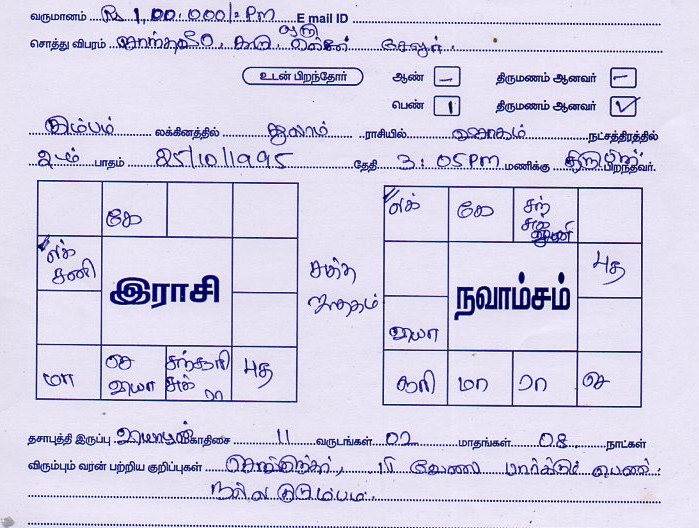 வருமானம் Rs 1,00,000/= PM E mail ID
சொத்து விபரம் சேலூர்.
உடன் பிறந்தோர் ஆண் – திருமணம் ஆனவர் –
பெண் 1 திருமணம் ஆனவர் ✓
கும்பம் லக்கினத்தில் துலாம் ராசியில் நட்சத்திரத்தில்
2ம் பாதம் 25/10/1995 தேதி 3:05 PM மணிக்கு பிறந்தவர்.
கே
லக் சனி
இராசி
மா செ வியா சந் சூரி சுக் ரா புத
சுத்த ஜாதகம்
லக் கே சந் சுக் சனி
புத
நவாம்சம்
வியா
சூரி மா ரா செ
தசாபுத்தி இருப்பு மகாதிசை 11 வருடங்கள் 02 மாதங்கள் 08 நாட்கள்
விரும்பும் வரன் பற்றிய குறிப்புகள் பெண்.
நல்ல குடும்பம்.